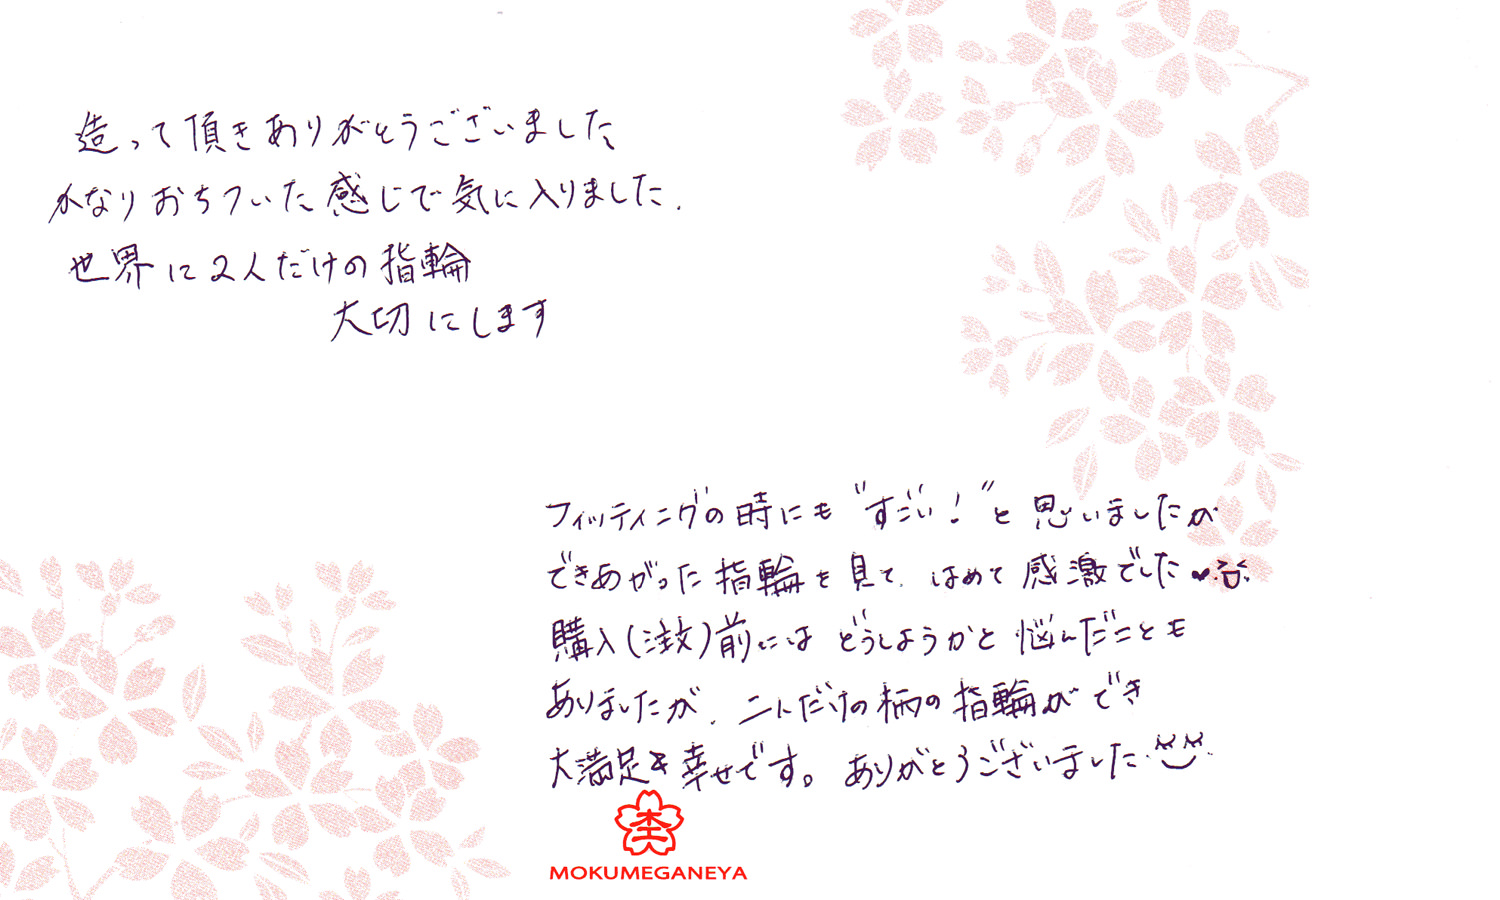 造って頂きありがとうございました
かなりおちついた感じで気に入りました.
世界に2人だけの指輪
大切にします
フィッティングの時にも "すごい!" と思いましたが
できあがった指輪を見て、はめて感激でした♥
購入(注文)前にはどうしようかと悩んだことも
ありましたが、二人だけの柄の指輪ができ
大満足&幸せです。ありがとうございました
杢
MOKUMEGANEYA